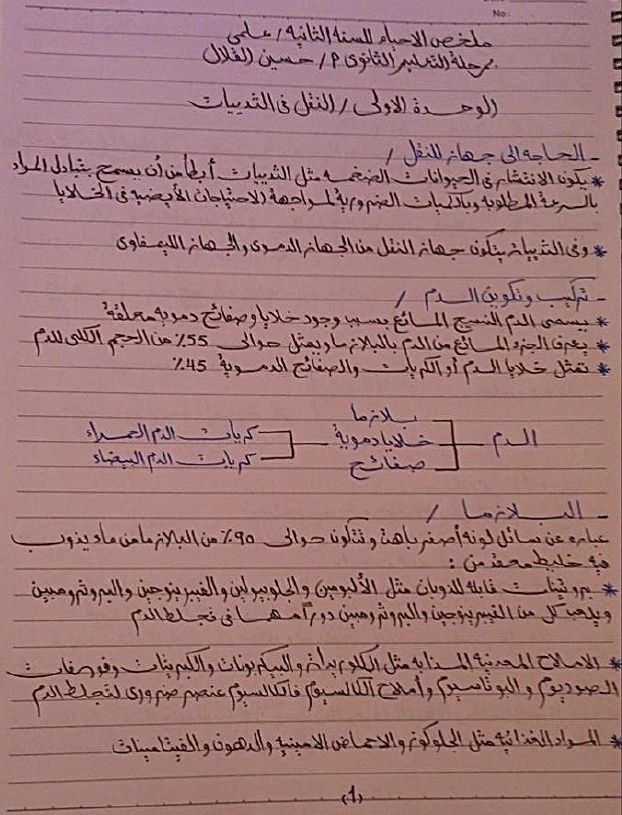 No:
ملخص الاحياء للسنة الثانية / علمي
مرحلة التعليم الثانوى م/ حسين القلال
الوحدة الاولى / النقل فى الثدييات
- الحاجه الى جهاز للنقل /
* يكون الانتشار فى الحيوانات الضخمه مثل الثدييات أبطأ من أن يسمح بتبادل المواد
بالسرعة المطلوبه وبالكميات الضروريه لمواجهة الاحتياجات الأيضيه فى الخلايا
* وفى الثدييات يتكون جهاز النقل من الجهاز الدموى والجهاز الليمفاوى
- تركيب وتكوين الدم /
* يسمى الدم النسيج المائع بسبب وجود خلايا وصفائح دمويه معلقة
* يعرف الجزء المائع من الدم بالبلازما ويمثل حوالى 55٪ من الحجم الكلى للدم
* تمثل خلايا الدم أو الكريات والصفائح الدموية 45٪
الدم
بلازما
خلايا دموية
صفائح
كريات الدم الحمراء
كريات الدم البيضاء
- البلازما /
عباره عن سائل لونه أصفر باهت وتتكون حوالى 90٪ من البلازما من ماء يذوب
فيه خليط معقد من :
* بروتينات قابله للذوبان مثل الألبومين والجلوبيولين والفيبرينوجين والبروثرومبين
ويلعب كل من الفيبرينوجين والبروثرومبين دوراً مهما فى تجلط الدم
* الاملاح المعدنية المذابه مثل الكلوريدات والبيكربونات والكبريتات وفوسفات
الصوديوم والبوتاسيوم وأملاح الكالسيوم فالكالسيوم عنصر ضرورى لتجلط الدم
* المواد الغذائيه مثل الجلوكوز والاحماض الامينيه والدهون والفيتامينات
(1)